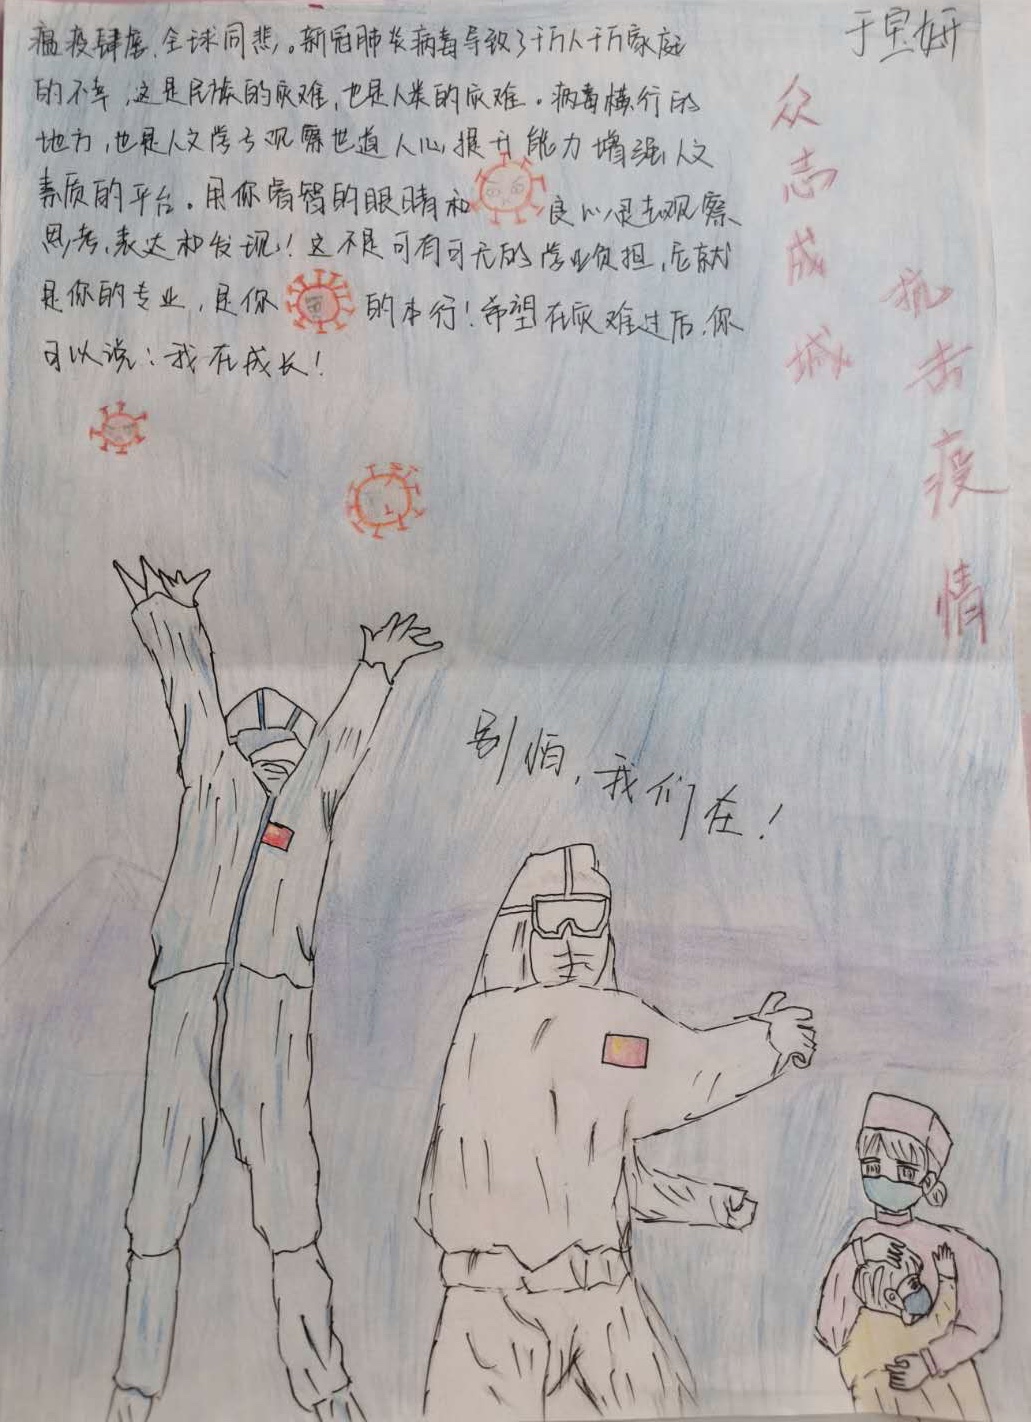 瘟疫肆虐,全球同悲。新冠肺炎病毒导致了千万人千万家庭
的不幸,这是民族的灾难,也是人类的灾难。病毒横行的
地方,也是人文学子观察世道人心,提升能力增强人文
素质的平台。用你睿智的眼睛和良心,是去观察
思考,表达和发现!这不是可有可无的学业负担,它就
是你的专业,是你的本行!希望在灾难过后,你
可以说:我在成长!
于宝妍
众志成城
抗击疫情
别怕,我们在!